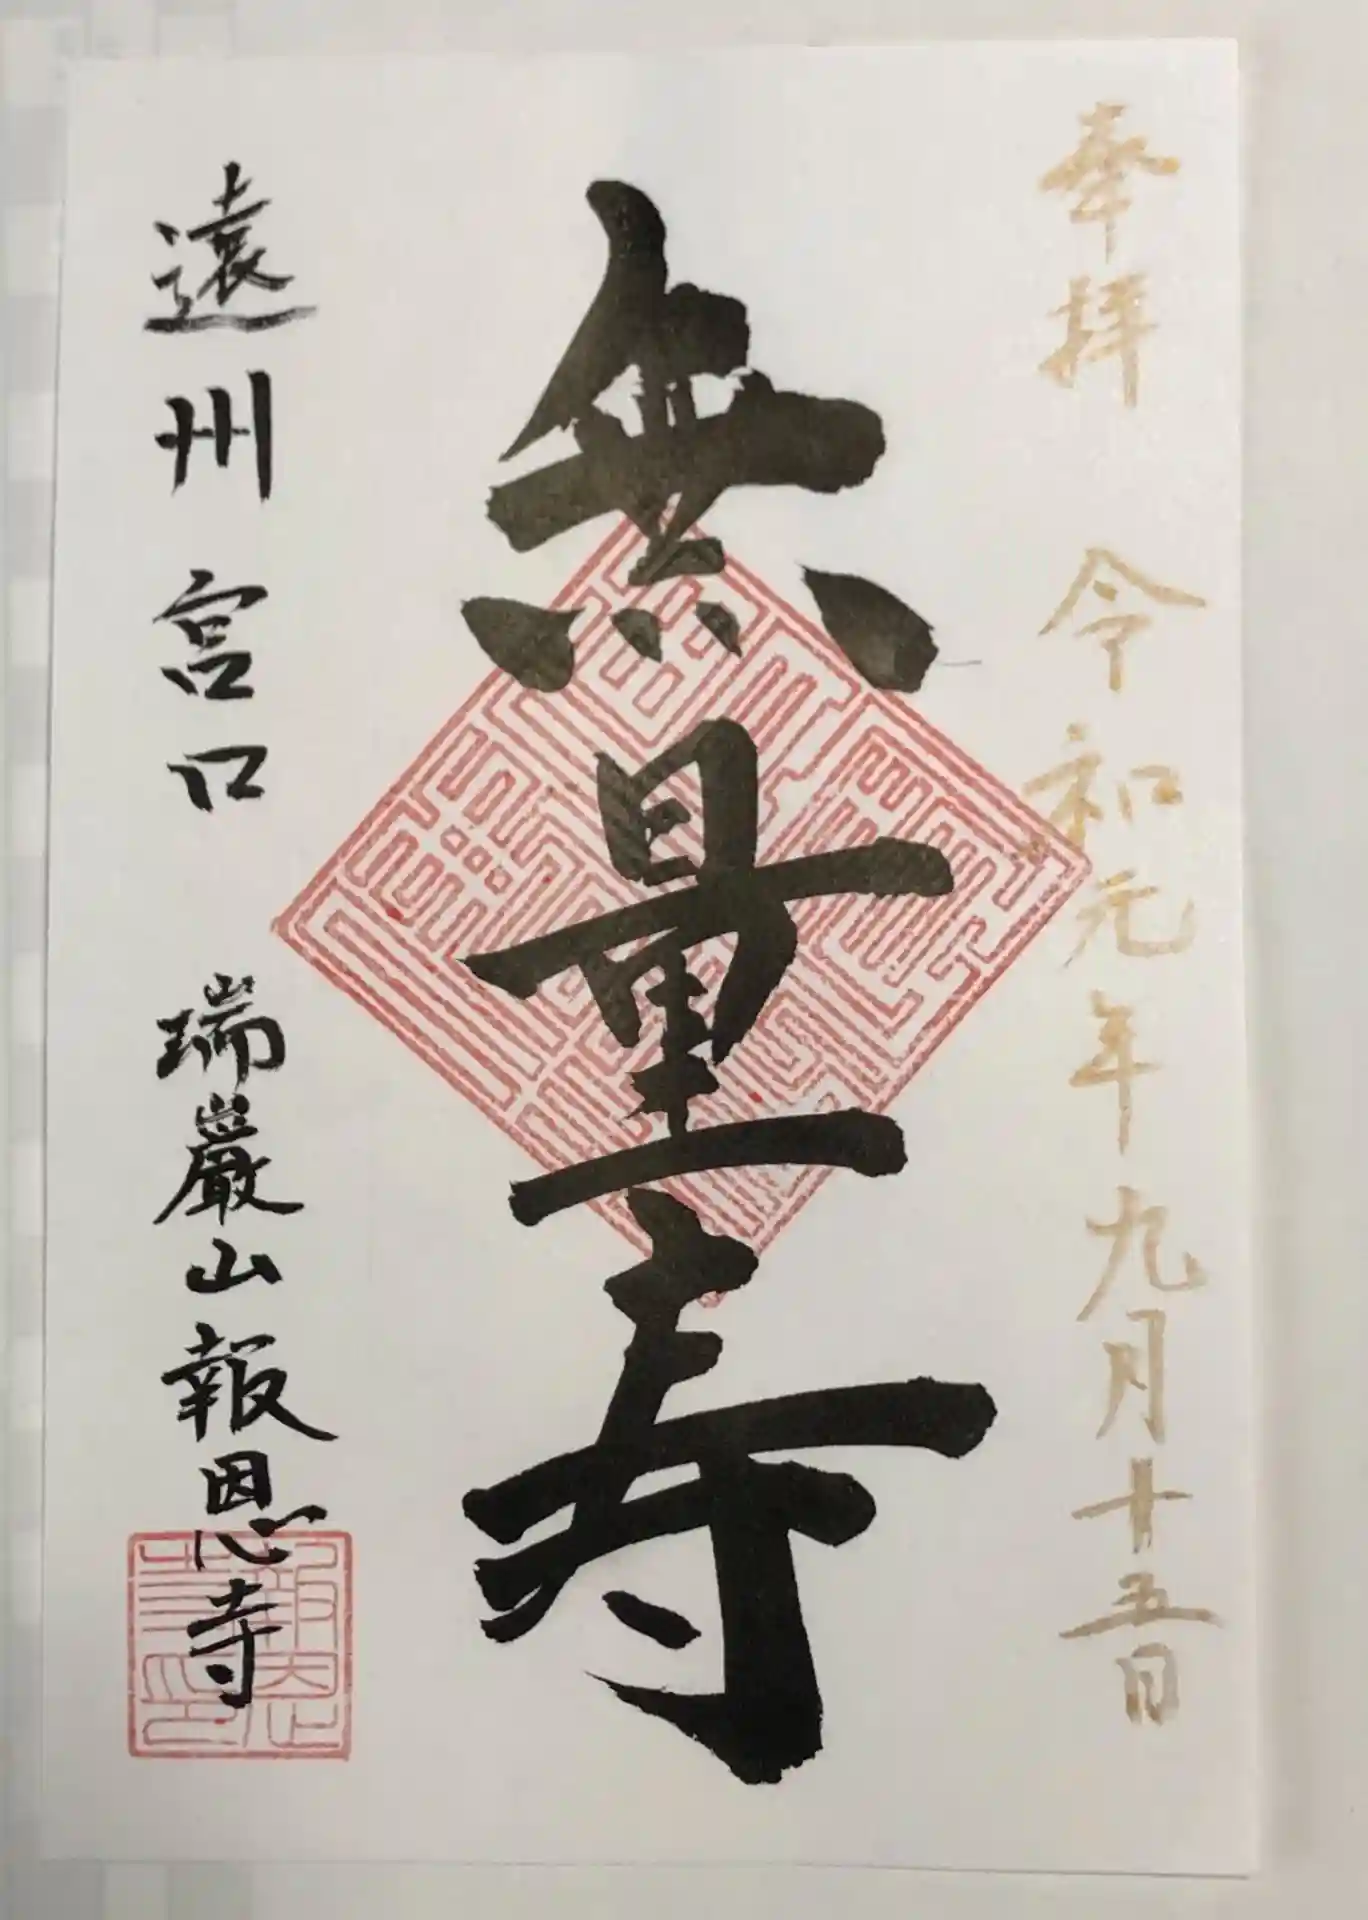 奉拝 令和元年九月十五日
無量寿
遠州宮口 瑞巌山報恩寺